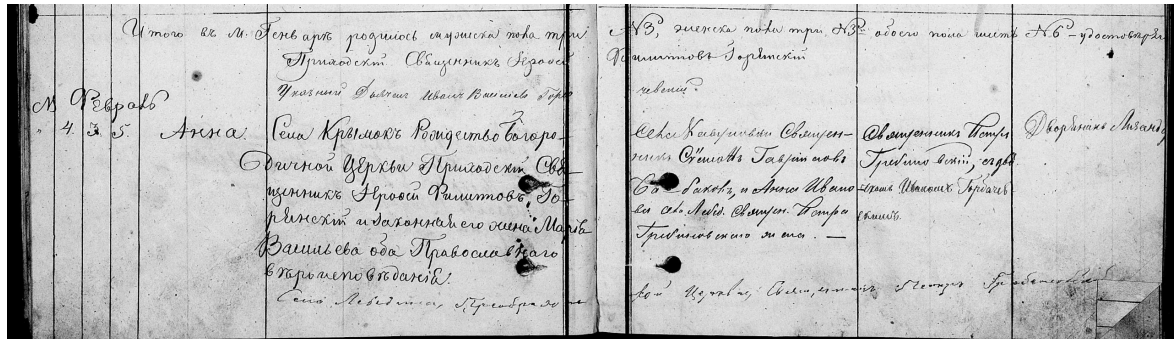 Итого въ М. Генваръ родилось мужеска пола три №3, женска пола три №3 обоего пола шесть №6 - удостовѣряем
Приходскій Священникъ Іерофей Филиповъ Горянскій
Указный Дьячекъ Иванъ Василіевъ
М Февраль
4. 5. Анна.
Села Крымокъ Рождество Богоро-
дичной Церкви Приходскій Свя-
щенникъ Іерофей Филиповъ Го-
рянскій и законная его жена Марія
Васильева оба Православнаго
вѣроисповѣданія.
Села Кавуновки Священ-
никъ Симеонъ Гавриловъ
и Анна Ивано-
ва села Лебед. Священ. Петра
Грабиновскаго жена —
Священникъ Петръ
Грабиновскій, съ дья-
чкомъ Иваномъ Горбачев-
скимъ.
Дворянинъ
Села Лебедина, Преображен
кой Церкви, Священникъ Петръ Грабиновскій